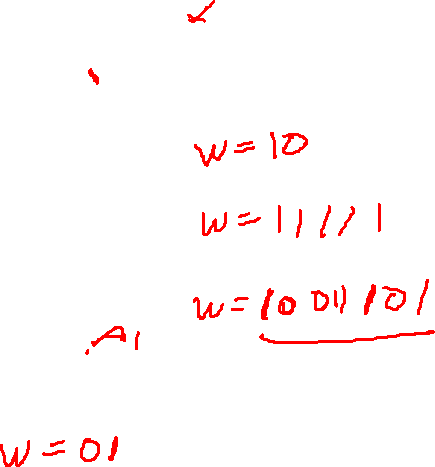 w = 10
w = 11111
w = 10011101
A1
w = 01